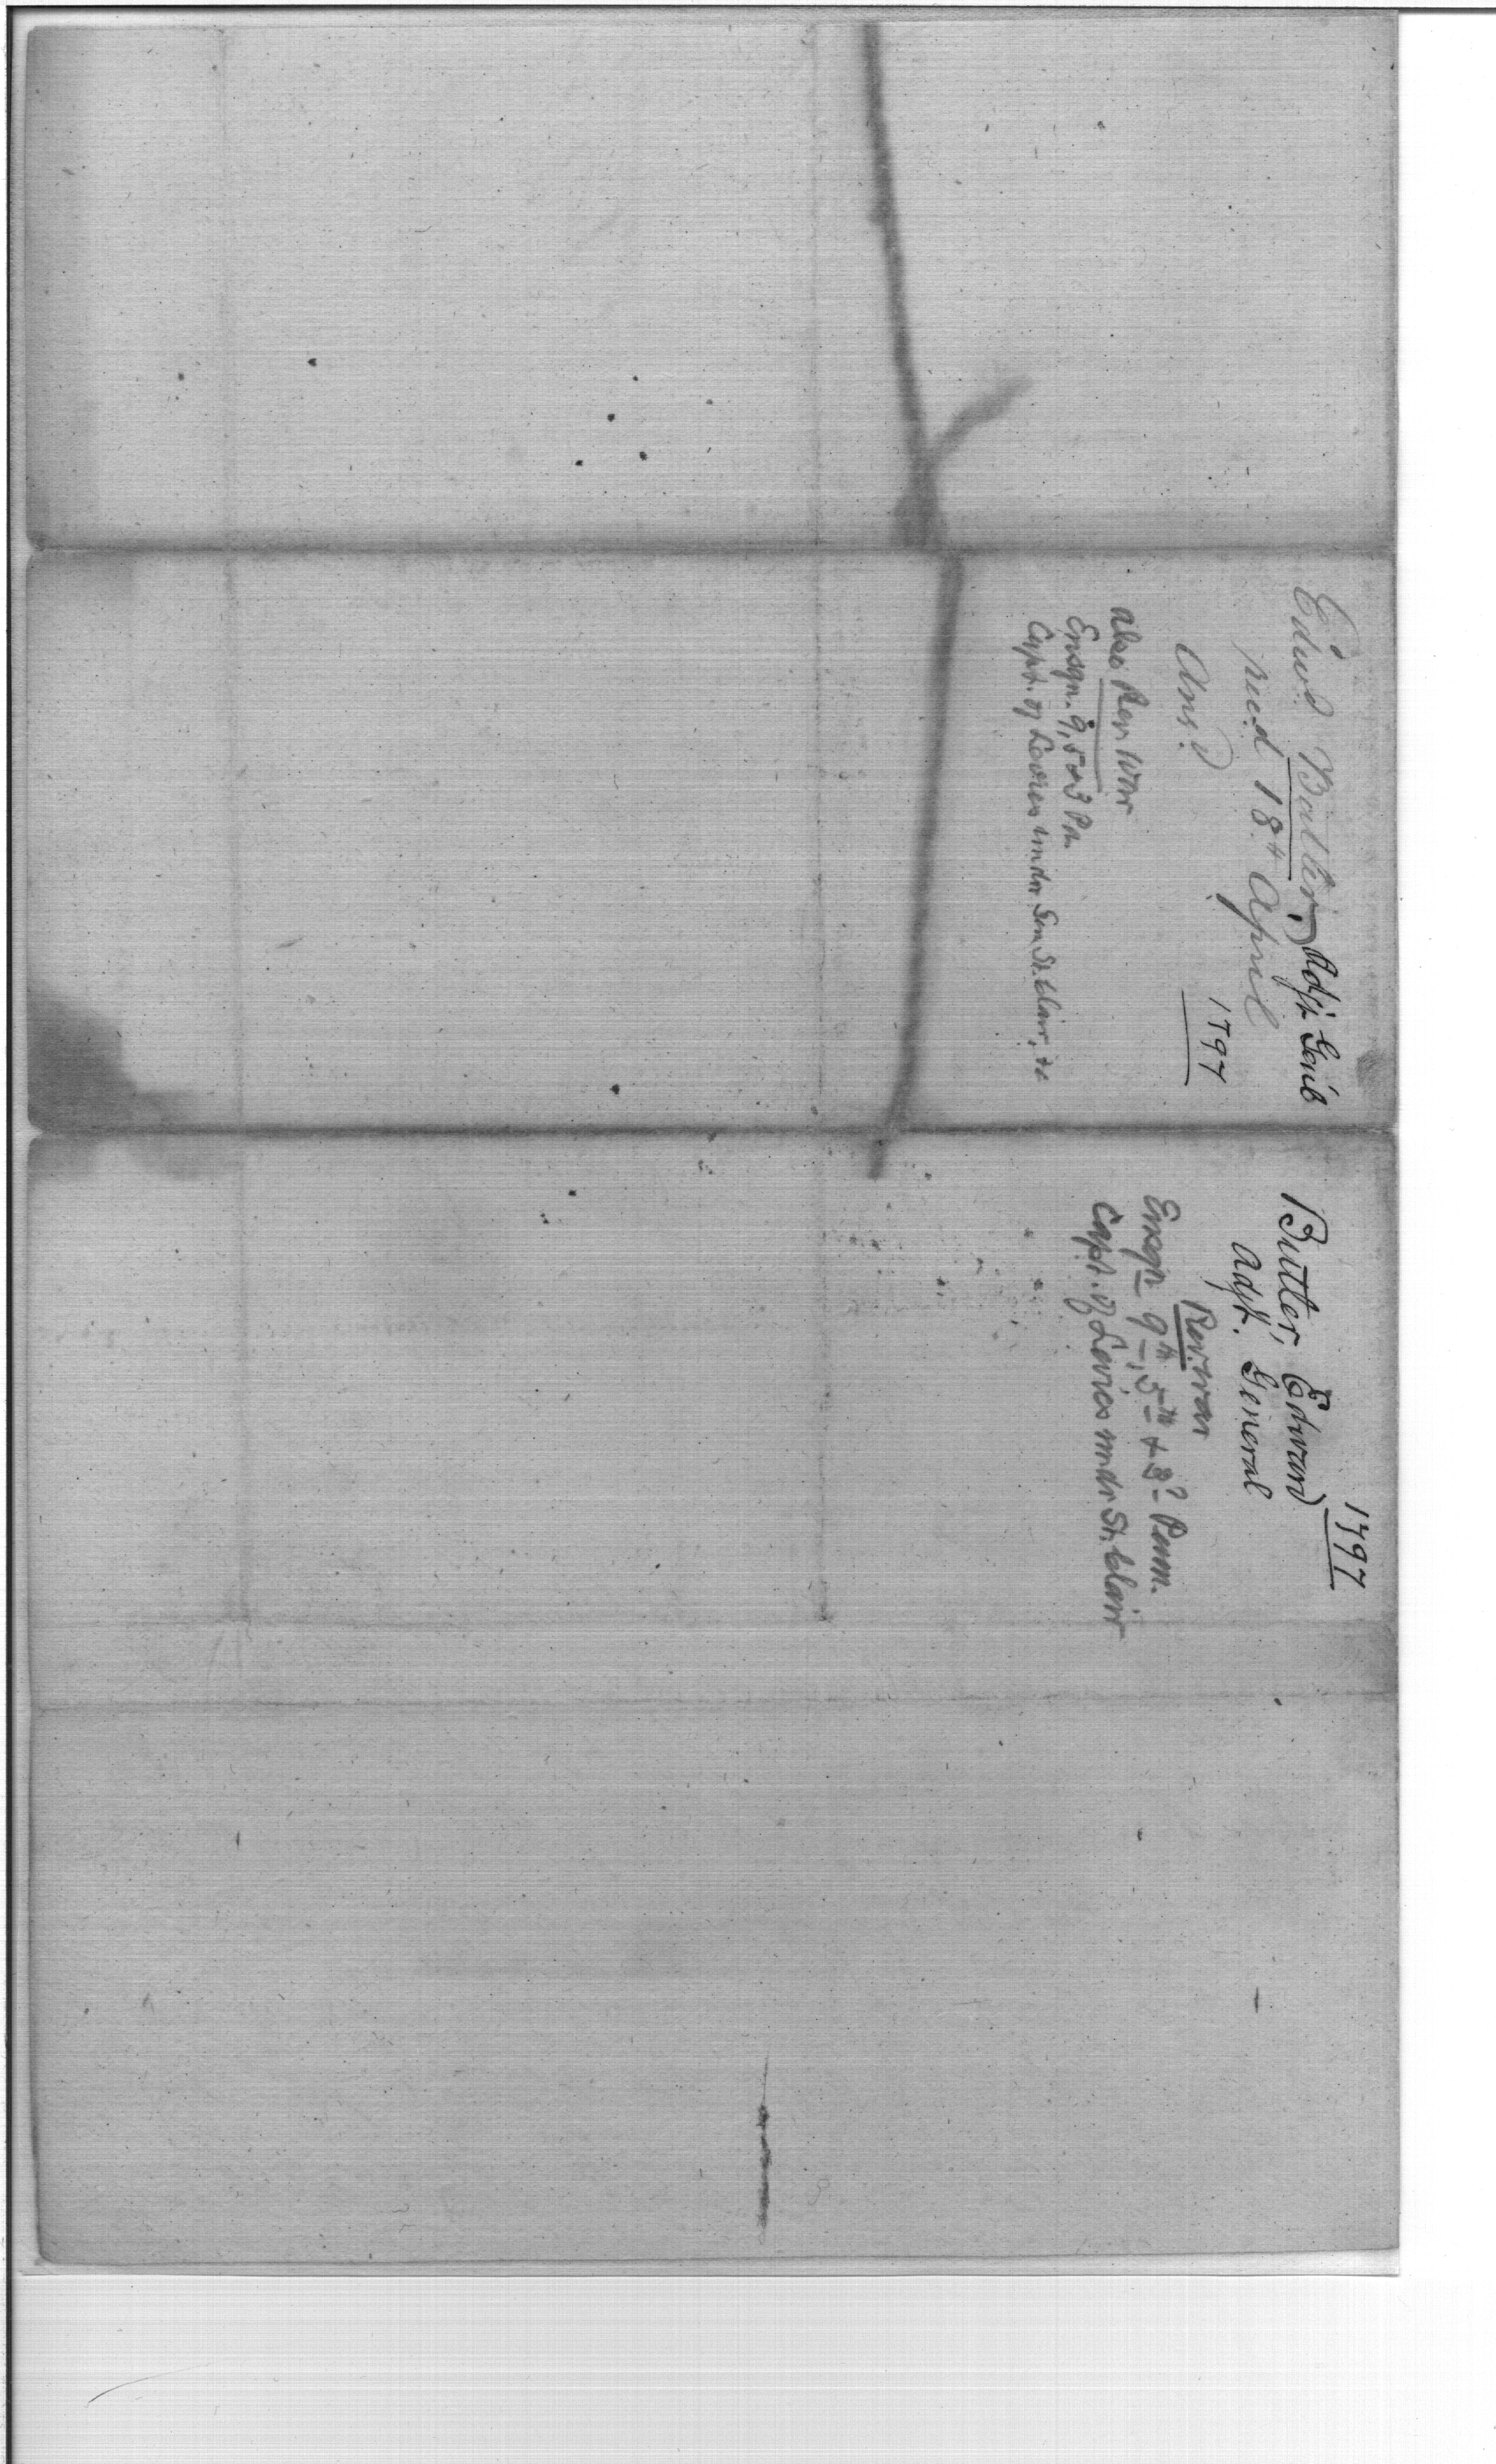 Edwd Butler, Adjt. Genl
recd 18th April
1797
Ansd
also Rev War
Ensgn. 9, 5 & 3 Pa
Capt. of Levies under Gen St. Clair, &c
1797
Butler, Edward
Adjt. General
Rev. war
Ensgn 9th, 5th & 3d Penn.
Capt. of Levies undr St. Clair